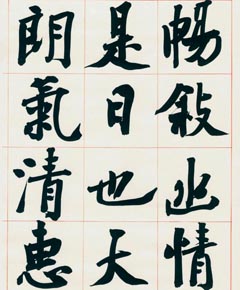 暢敘幽情
是日也天
朗氣清惠